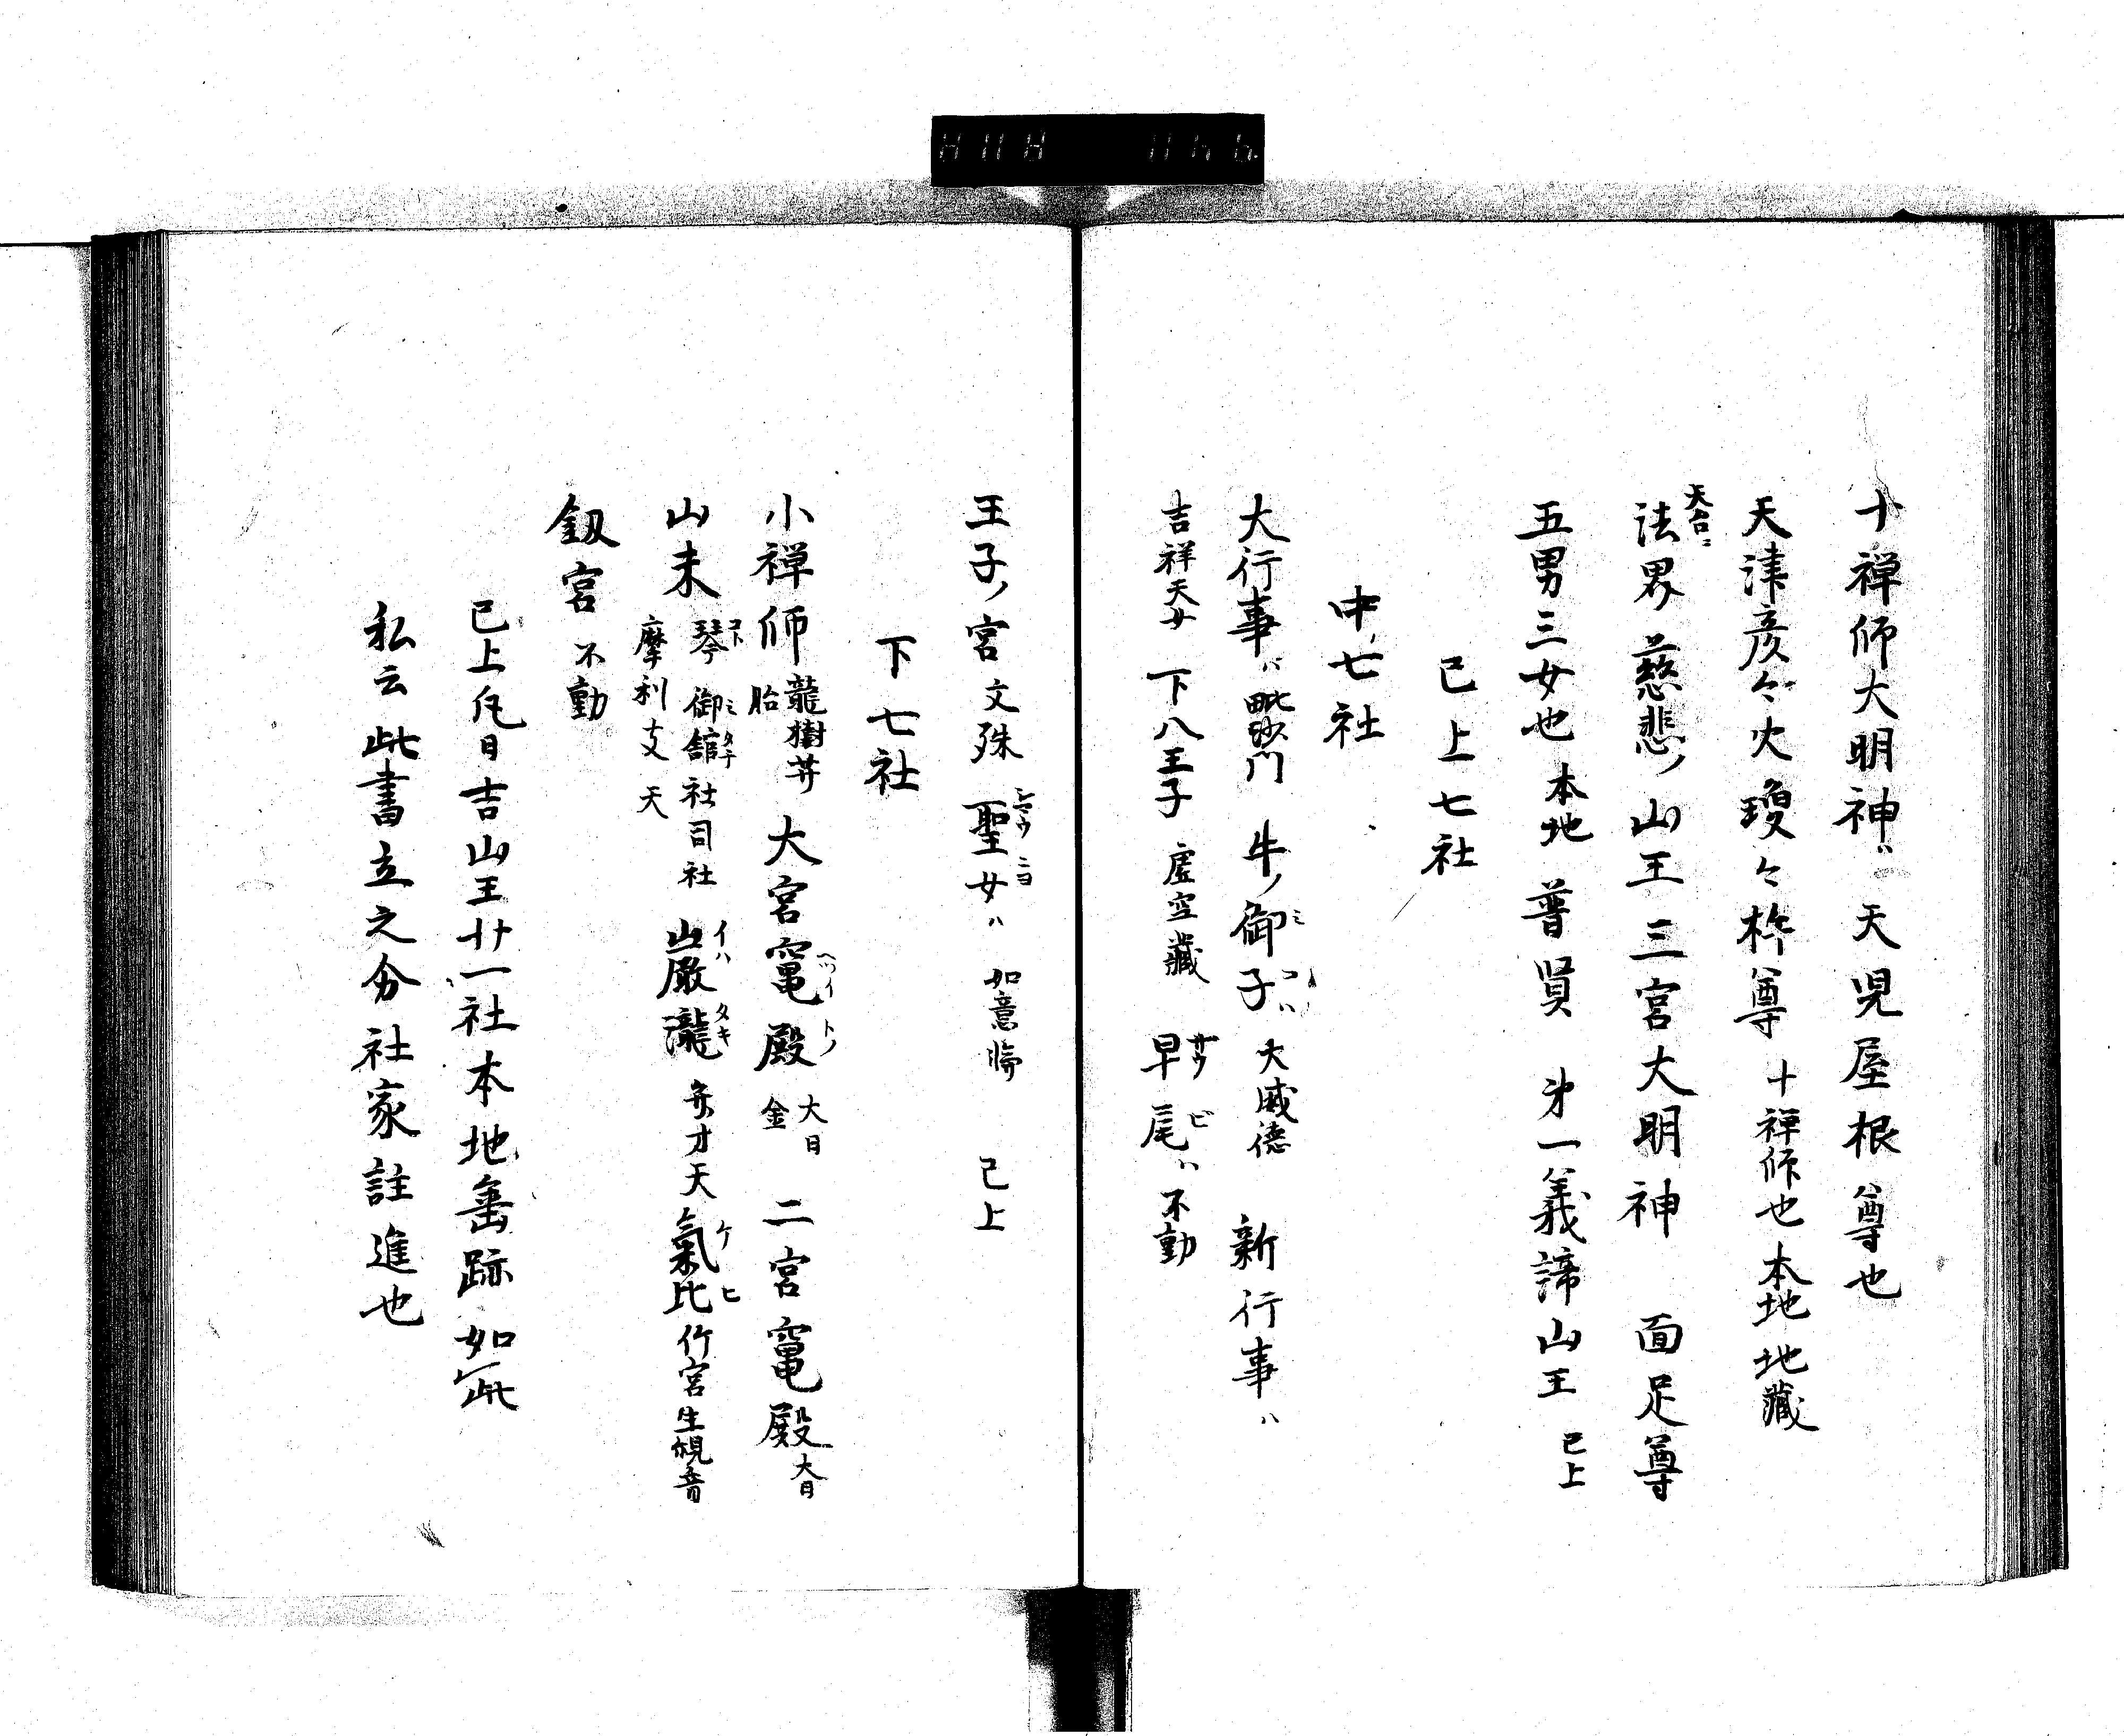 十禅師大明神ハ天児屋根尊也
天津彦々火瓊々杵尊 十禅師也本地地藏
天台ニ
法界慈悲ノ山王三宮大明神 面足尊
五男三女也 本地 普賢 㐧一義諦山王 已上
已上七社
中ノ七社
大行事ハ毗沙門 牛ノ御子ハ大威德 新行事ハ
ミ コハ
吉祥天女 下八王子 虚空藏 早尾ハ不動
サウ ビ
王子ノ宮 文殊 聖女ハ 如意輪 已上
シヤウ ニヨ
下七社
小禅師 龍樹䒑 胎 大宮竈殿 大日 金 二宮竈殿 大日
ヘツイ トノ
山末 琴御舘社司社 摩利支天 巌瀧 弁才天 氣比 竹宮 生観音
コト ミタチ イハ タキ ケ ヒ
釼宮 不動
已上凡日吉山王廿一社本地垂跡如此
私云此書立之分社家註進也